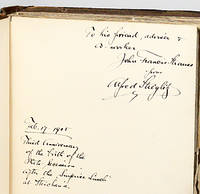 To his friend, adviser &
co-worker
John Francis Strauss
from
Alfred Stieglitz
Feb. 17. 1905
Third Anniversary
of the birth of the
Photo-Secession.
after the Surprise Lunch
at